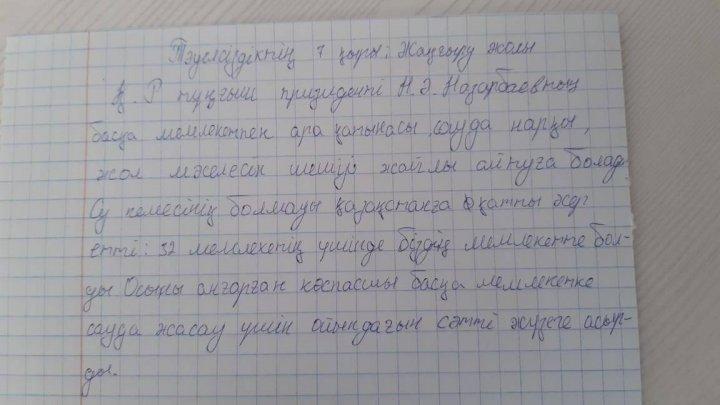 Тәуелсіздіктің 7 қыры: Жаңғыру жолы
Қ.Р тұңғыш призиденті Н.Ә.Назарбаевтың
басқа мемлекетпен ара қатынасы, сауда нарқы,
жол мәселесін шешуі жайлы айтуға болад
Су кемесінің болмауы қазақстанға қатты әсер
етті: 32 мемлекетің ішінде біздің мемлекетте бол-
ды Осыны аңғарған көспасшы басқа мемлекетке
сауда жасау үшін ойындағын сәтті жүзеге асыр-
ды.